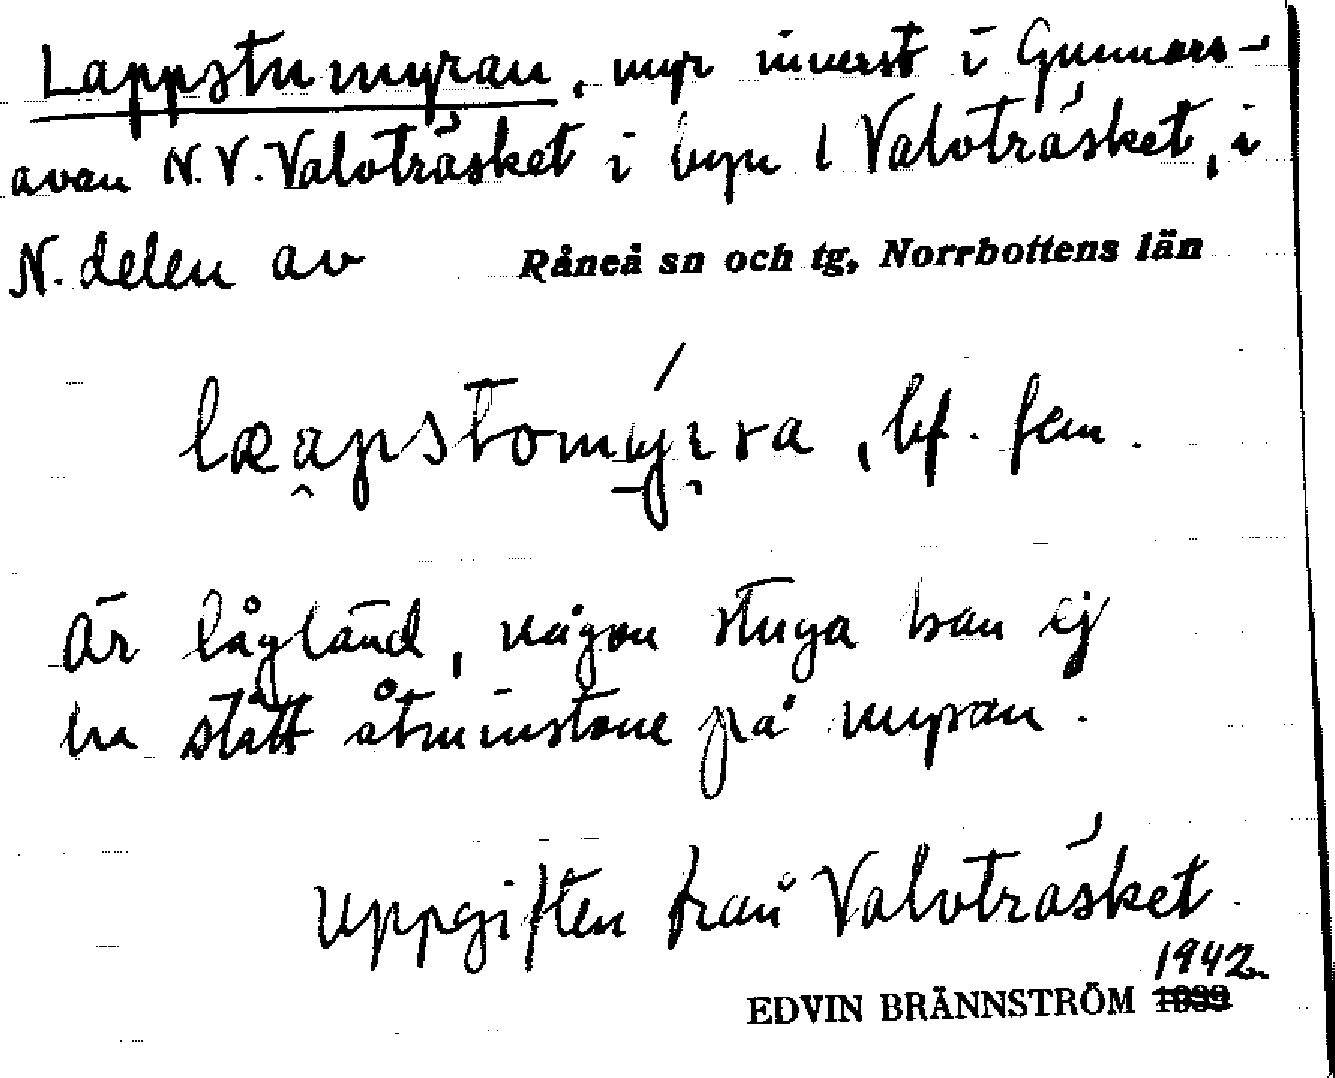 Lappstumyran, myr inverst i Gunnars-
avan N.V. Valvträsket i byn l Valvträsket, i
N. delen av Råneå sn och tg, Norrbottens län
læapstomýrra, bf. fem.
Är lågländ, någon stuga kan ej
ha stått åtminstone på myran.
Uppgiften från Valvträsket.
1942
EDVIN BRÄNNSTRÖM